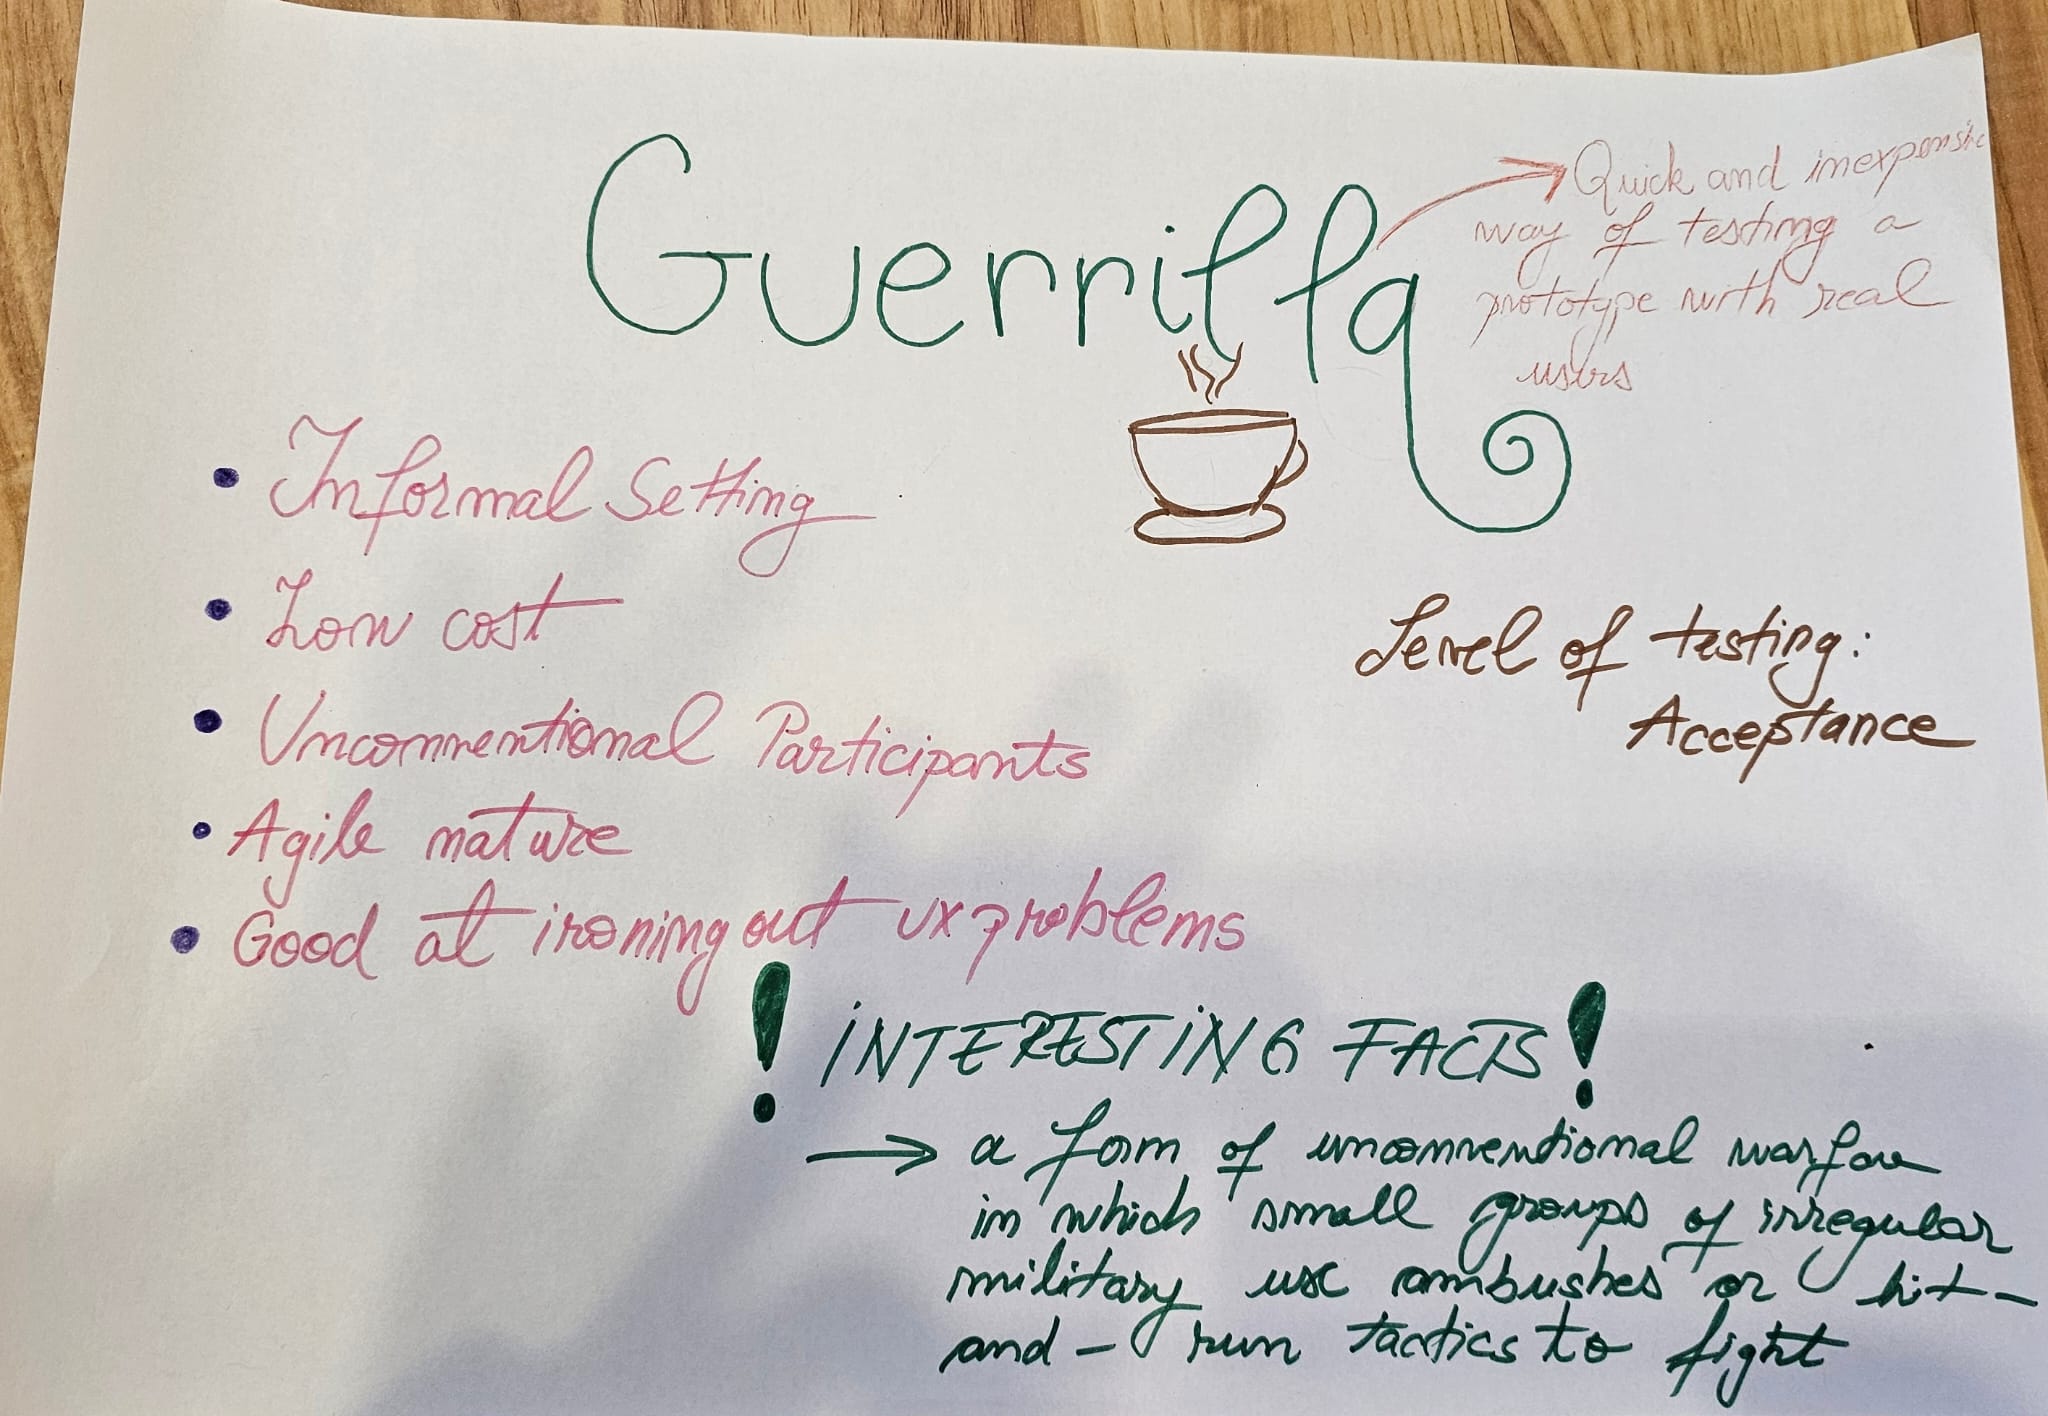 Guerrilla
Quick and inexpensive
way of testing a
prototype with real
users
• Informal Setting
• Low cost
• Unconventional Participants
• Agile nature
• Good at ironing out ux problems
Level of testing:
Acceptance
! INTERESTING FACTS !
→ a form of unconventional warfare
in which small groups of irregular
military use ambushes or hit-
and-run tactics to fight